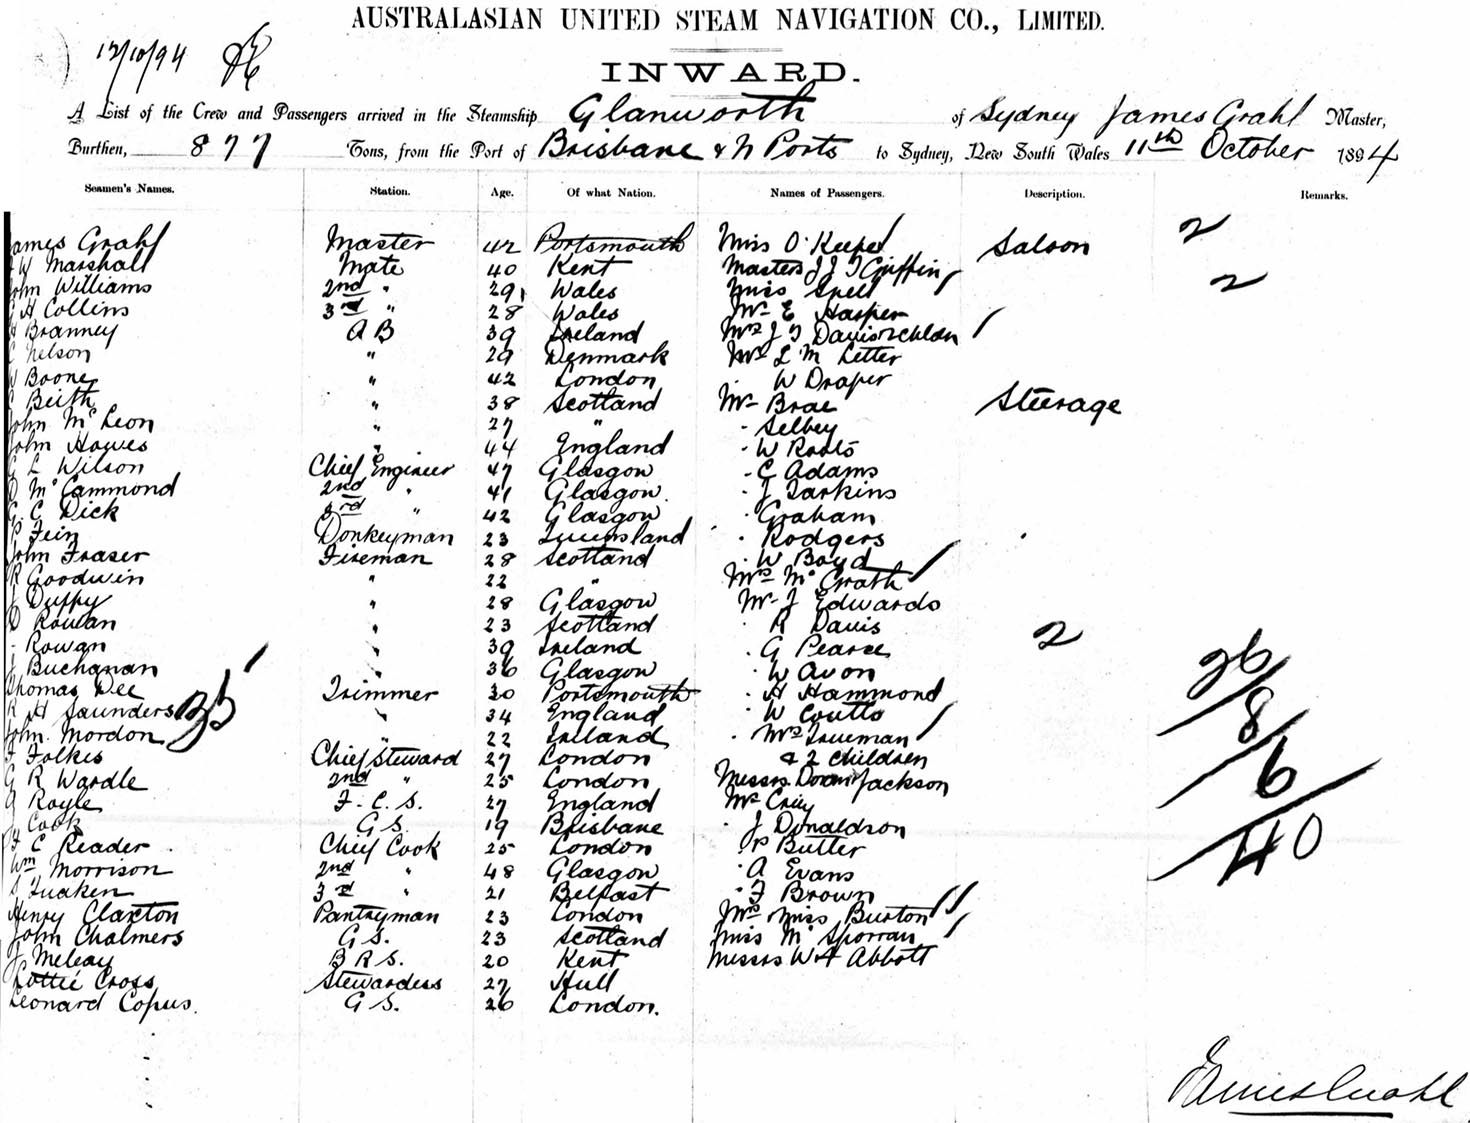 AUSTRALASIAN UNITED STEAM NAVIGATION CO., LIMITED.
12/10/94
INWARD.
A List of the Crew and Passengers arrived in the Steamship Glanworth of Sydney James Grahl Master,
Burthen, 877 Tons, from the Port of Brisbane & N Ports to Sydney, New South Wales 11th October 1894
Seamen's Names. Station. Age. Of what Nation. Names of Passengers. Description. Remarks.
James Grahl Master 42 Portsmouth Miss O'Keefe Saloon 2
W Marshall Mate 40 Kent Masters J J T Griffin
John Williams 2nd " 29 Wales Miss Snell 2
H Collins 3rd " 28 Wales Mr E Harper
H Branney A B 39 Ireland Mrs J T Davis
C Nelson " 29 Denmark Mr L M Letter
W Boone " 42 London " W Draper
Beith " 38 Scotland Mr Brae Steerage
John McLeon " 27 " " Selby
John Howes " 44 England " W Roots
G L Wilson Chief Engineer 47 Glasgow " C Adams
D McCammond 2nd " 41 Glasgow " J Larkins
G C Dick 3rd " 42 Glasgow " Graham
P Fein Donkeyman 23 Queensland " Rodgers
John Fraser Fireman 28 Scotland " W Boyd
R Goodwin " 22 " Mrs McGrath
J Duffy " 28 Glasgow Mr J Edwards
D Rowan " 23 Scotland " R Davis
Rowan " 39 Ireland " G Pearce 2
J Buchanan " 36 Glasgow " W Avon 26
Thomas Dee Trimmer 30 Portsmouth " H Hammond
R H Saunders 35 " 34 England " W Coutts 8
John Mordon " 22 Ireland " Mrs Trueman
F Folkes Chief Steward 27 London & 2 children 6
G R Wardle 2nd " 25 London Messrs Jackson
G Royle F. C. S. 27 England Mr
J Cook G S. 19 Brisbane " J Donaldson 40
F C Reader Chief Cook 25 London " P Butler
Wm Morrison 2nd " 48 Glasgow " A Evans
S Tuaken 3rd " 21 Belfast " F Brown
Henry Claxton Pantryman 23 London Mrs & Miss Burton
John Chalmers G S. 23 Scotland Miss McSporran
J Meleay B R S. 20 Kent Messrs W & Abbott
Lottie Cross Stewardess 27 Hull
Leonard Copus. G S. 26 London.
James Grahl